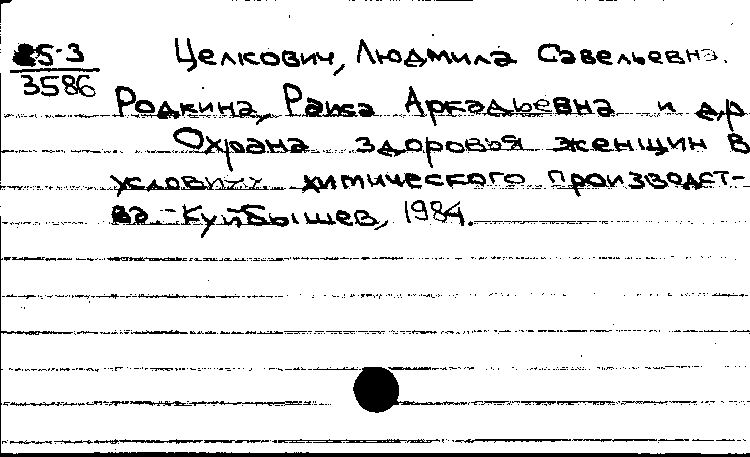 85-3 Целкович, Людмила Савельевна.
3586
Родкина, Раиса Аркадьевна и др
Охрана здоровья женщин в
условиях химического производст-
ва.-Куйбышев, 1984.